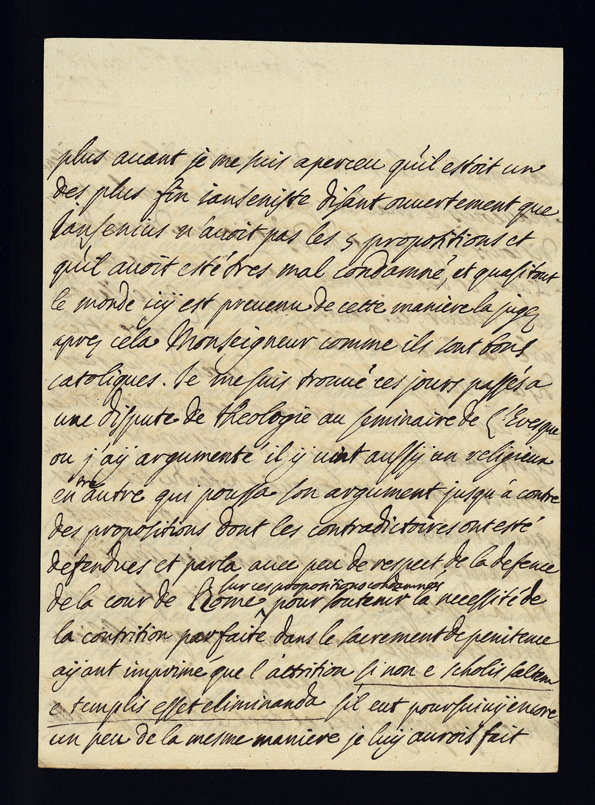 plus auant je me suis aperceu qu'il estoit un
des plus fin janseniste disant ouvertement que
Jansenius n'auoit pas les 5 propositions et
qu'il auoit esté tres mal condamné, et quasi tout
le monde icÿ est preuenu de cette maniere la jugez
aprez cela Monseigneur comme ils sont bons
catoliques. Je me suis trouué ces jours passés a
une dispute de theologie au seminaire de L'Euesque
ou j'aÿ argumenté il ÿ uint aussÿ un religieux
entre autre qui poussa son argument jusqu'à contre
des propositions dont les contradictoires ont esté
defendues et parla auec peu de respect de la defence
de la cour de Rome sur ces propositions condamnées pour soutenir la necessité de
la contrition parfaite dans le sacrement de penitence
aÿant imprimé que l'attrition si non e scholis saltem
e templis esset eliminanda s'il eut poursuiuÿ encore
un peu de la mesme maniere je luÿ aurois fait